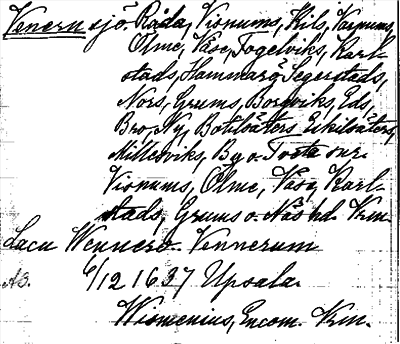 Venern sjö. Råda, Visnums, Kils, Varnums,
Ölme, Väse, Fogelviks, Karl-
stads, Hammarö, Segerstads,
Nors, Grums, Borgviks, Eds,
Bro, Ny, Botilsäters, Eskilsäters,
Millesviks, By o. Tösta snr.
Visnums, Ölme, Väse, Karl-
stads, Grums o. Näs hd. Vrm.
Lacu Wennero. Vennerum
AB. 6/12 1637 Upsala.
Wismenius, Encom. Vrm.